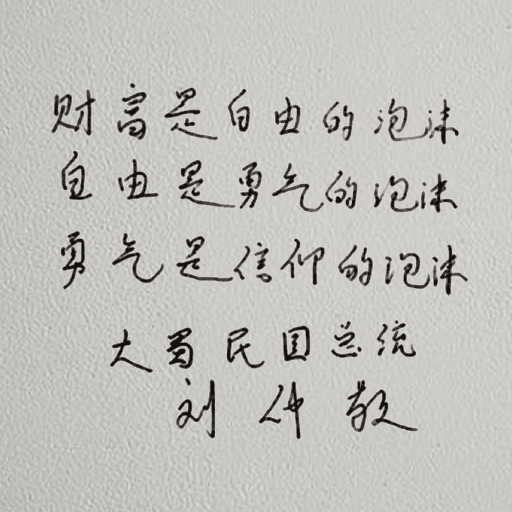 财富是自由的泡沫
自由是勇气的泡沫
勇气是信仰的泡沫
大蜀民国总统
刘仲敬